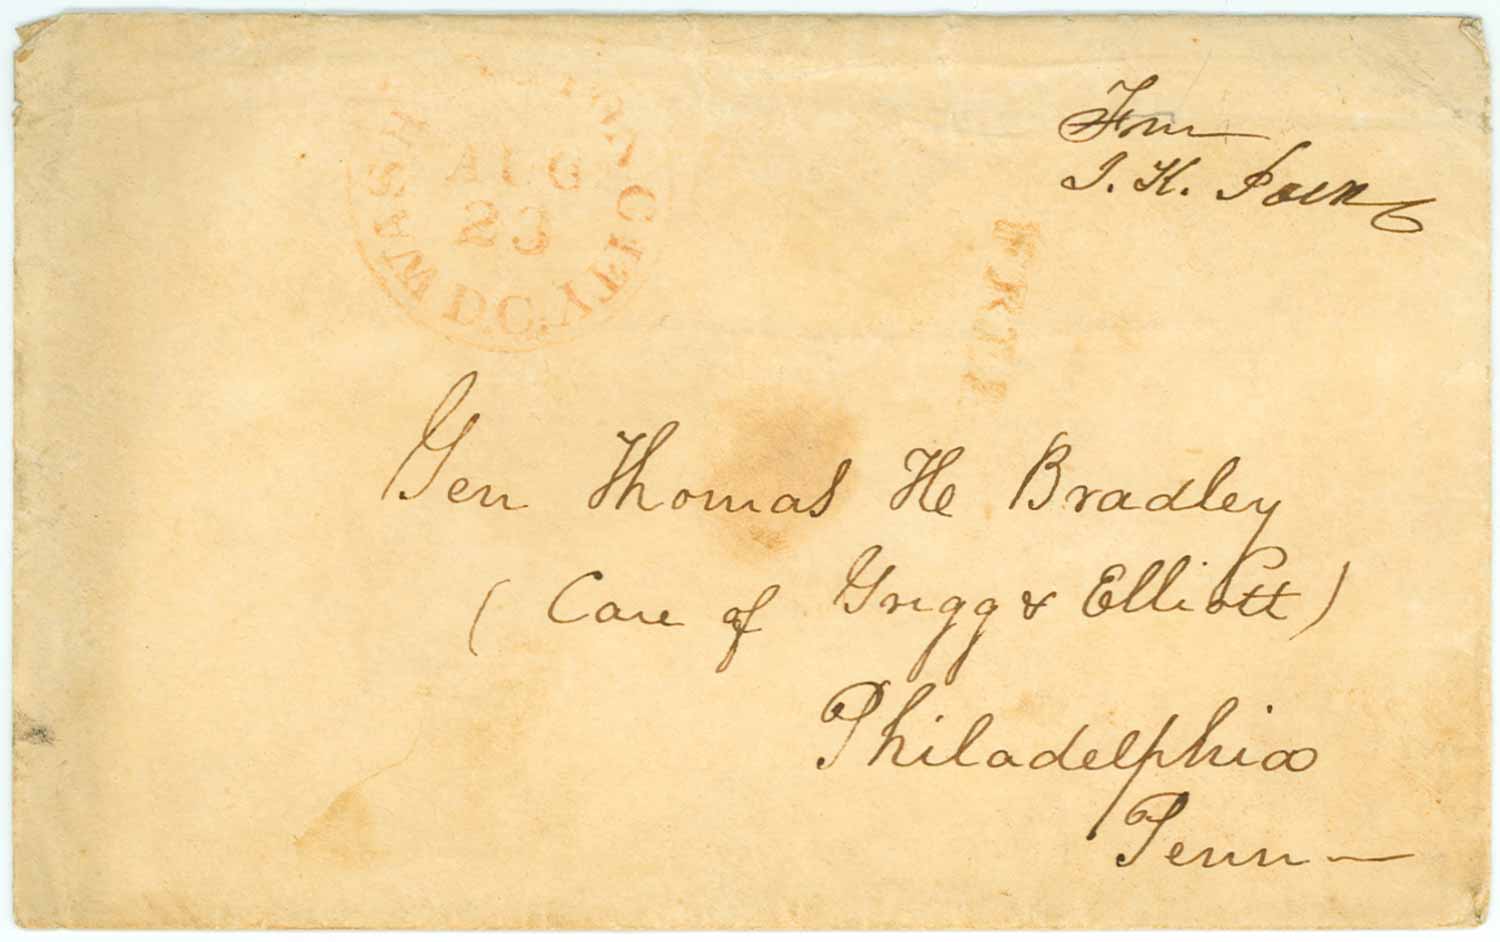 WASHINGTON CITY
D.C.
AUG
23
From
J. K. Polk
FREE
Gen Thomas H Bradley
(Care of Grigg & Elliott)
Philadelphia
Penn—